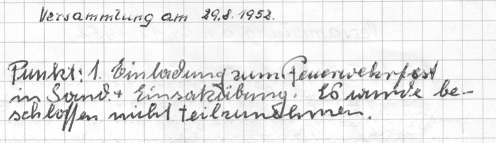 Versammlung am 29.8.1952.
Punkt: 1. Einladung zum Feuerwehrfest
in Sand. + Einsatzübung. Es wurde be-
schloffen nicht teilzunehmen.